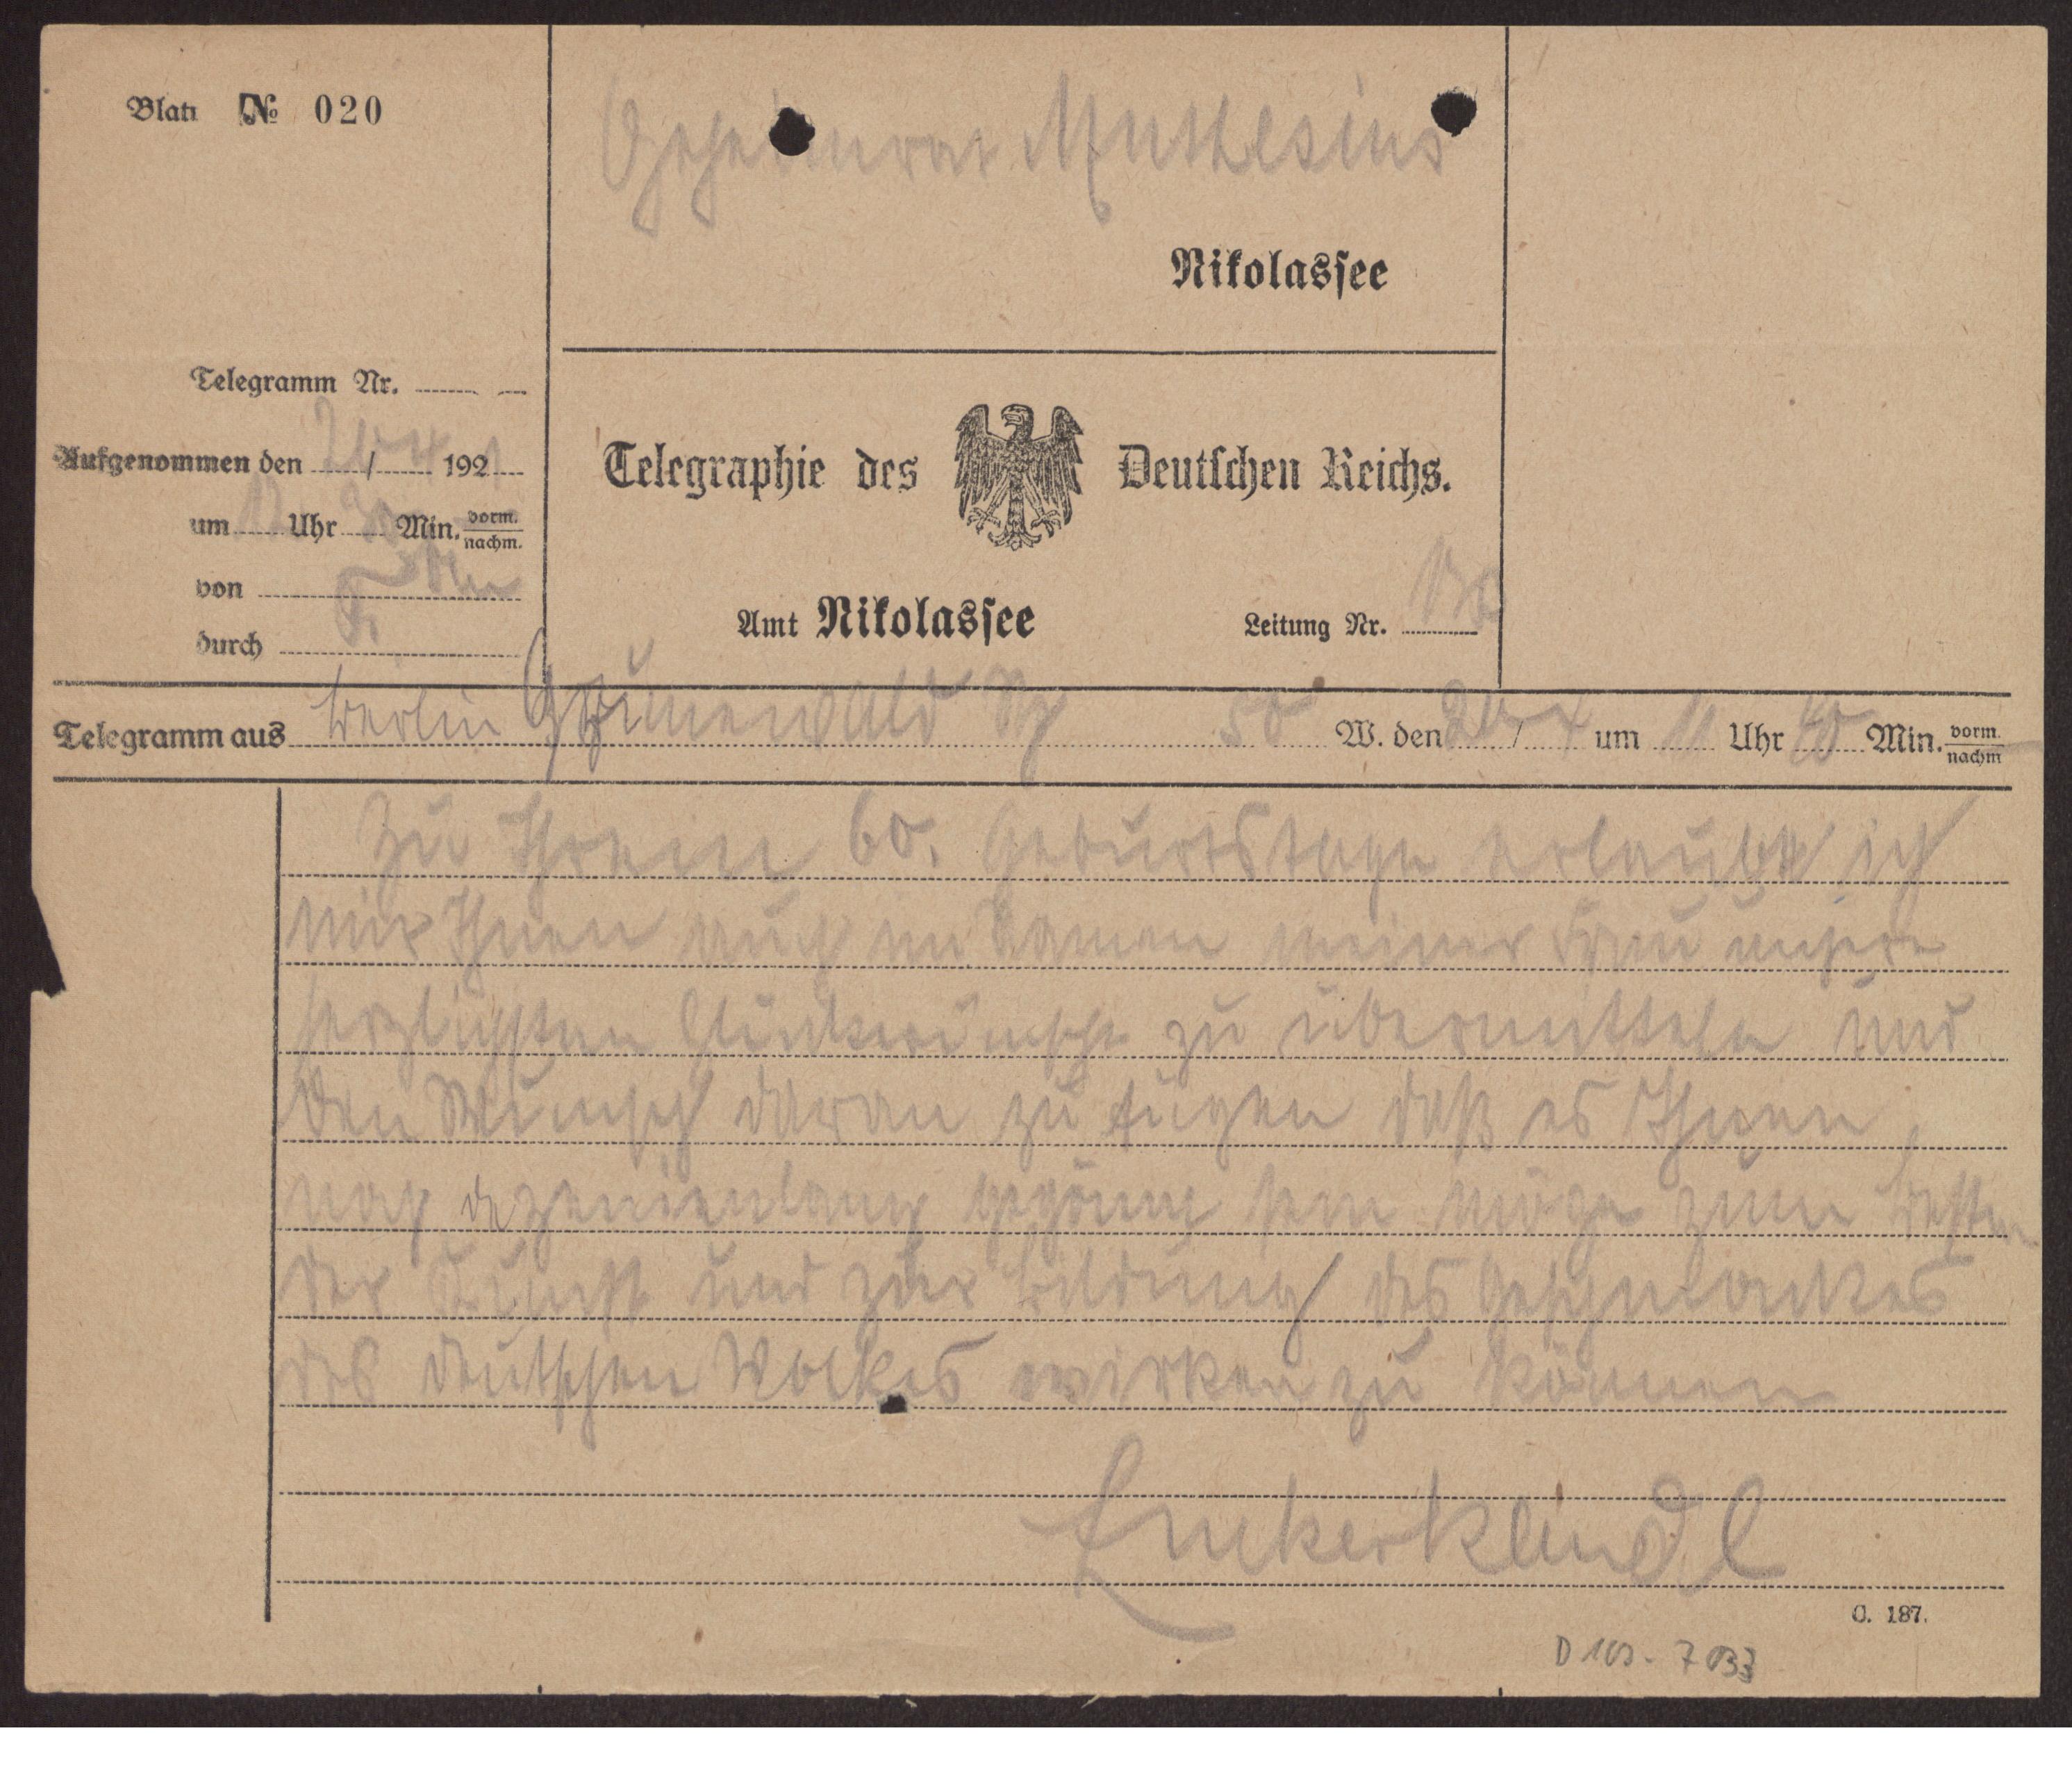 Blatt № 020
Geheimrat Muthesius
Nikolassee
Telegramm Nr.
Aufgenommen den 20/4 1921
um 12 Uhr Min. vorm. nachm.
von
durch
Telegraphie des Deutschen Reichs.
Amt Nikolassee Leitung Nr.
Telegramm aus Berlin Grunewald 50 W. den 20/4 um 11 Uhr 40 Min. vorm. nachm
Zu Ihrem 60. Geburtstage erlaube ich
mir Ihnen auch im Namen meiner Frau unsere
herzlichsten Glückwünsche zu übermitteln und
den Wunsch daran zu fügen daß es Ihnen
noch dezennienlang gegönnt sein möge zum Besten
der Kunst und zur Bildung des Geschmackes
des deutschen Volkes wirken zu können
Zuckerkandl
C. 187.
D 102 - 7033